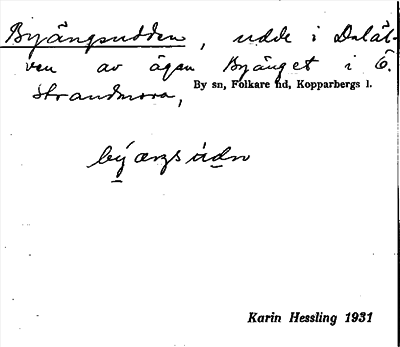 Byängsudden, udde i Daläl-
ven av ägan Byänget i Ö.
Strandmora, By sn, Folkare hd, Kopparbergs l.
Karin Hessling 1931